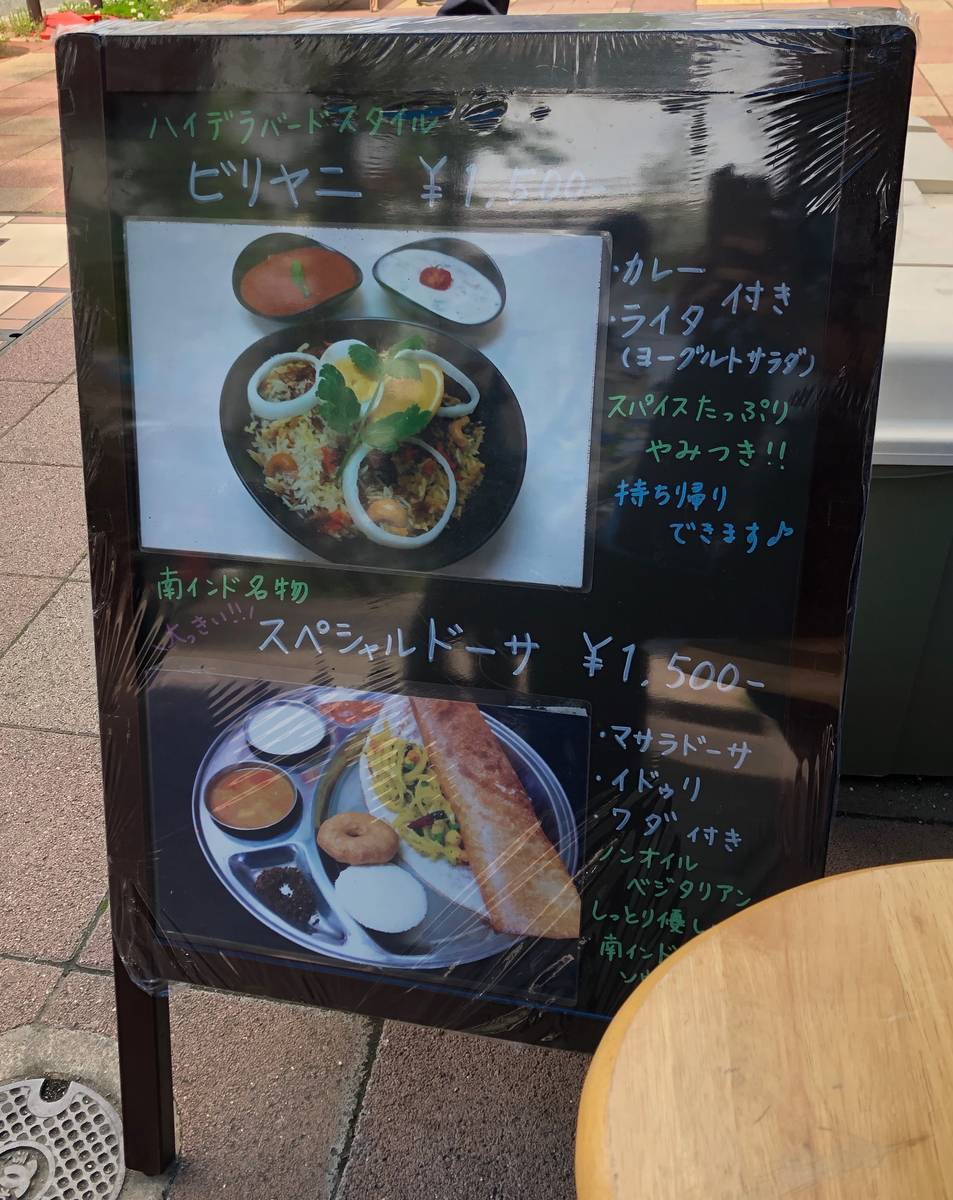 ハイデラバードスタイル
ビリヤニ ¥1,500-
・カレー
・ライタ 付き
(ヨーグルトサラダ)
スパイスたっぷり
やみつき!!
持ち帰り
できます♪
南インド名物
大っきい!!!
スペシャルドーサ ¥1,500-
・マサラドーサ
・イドゥリ
・ワダ 付き
ノンオイル
ベジタリアン
しっとり優し
南インド